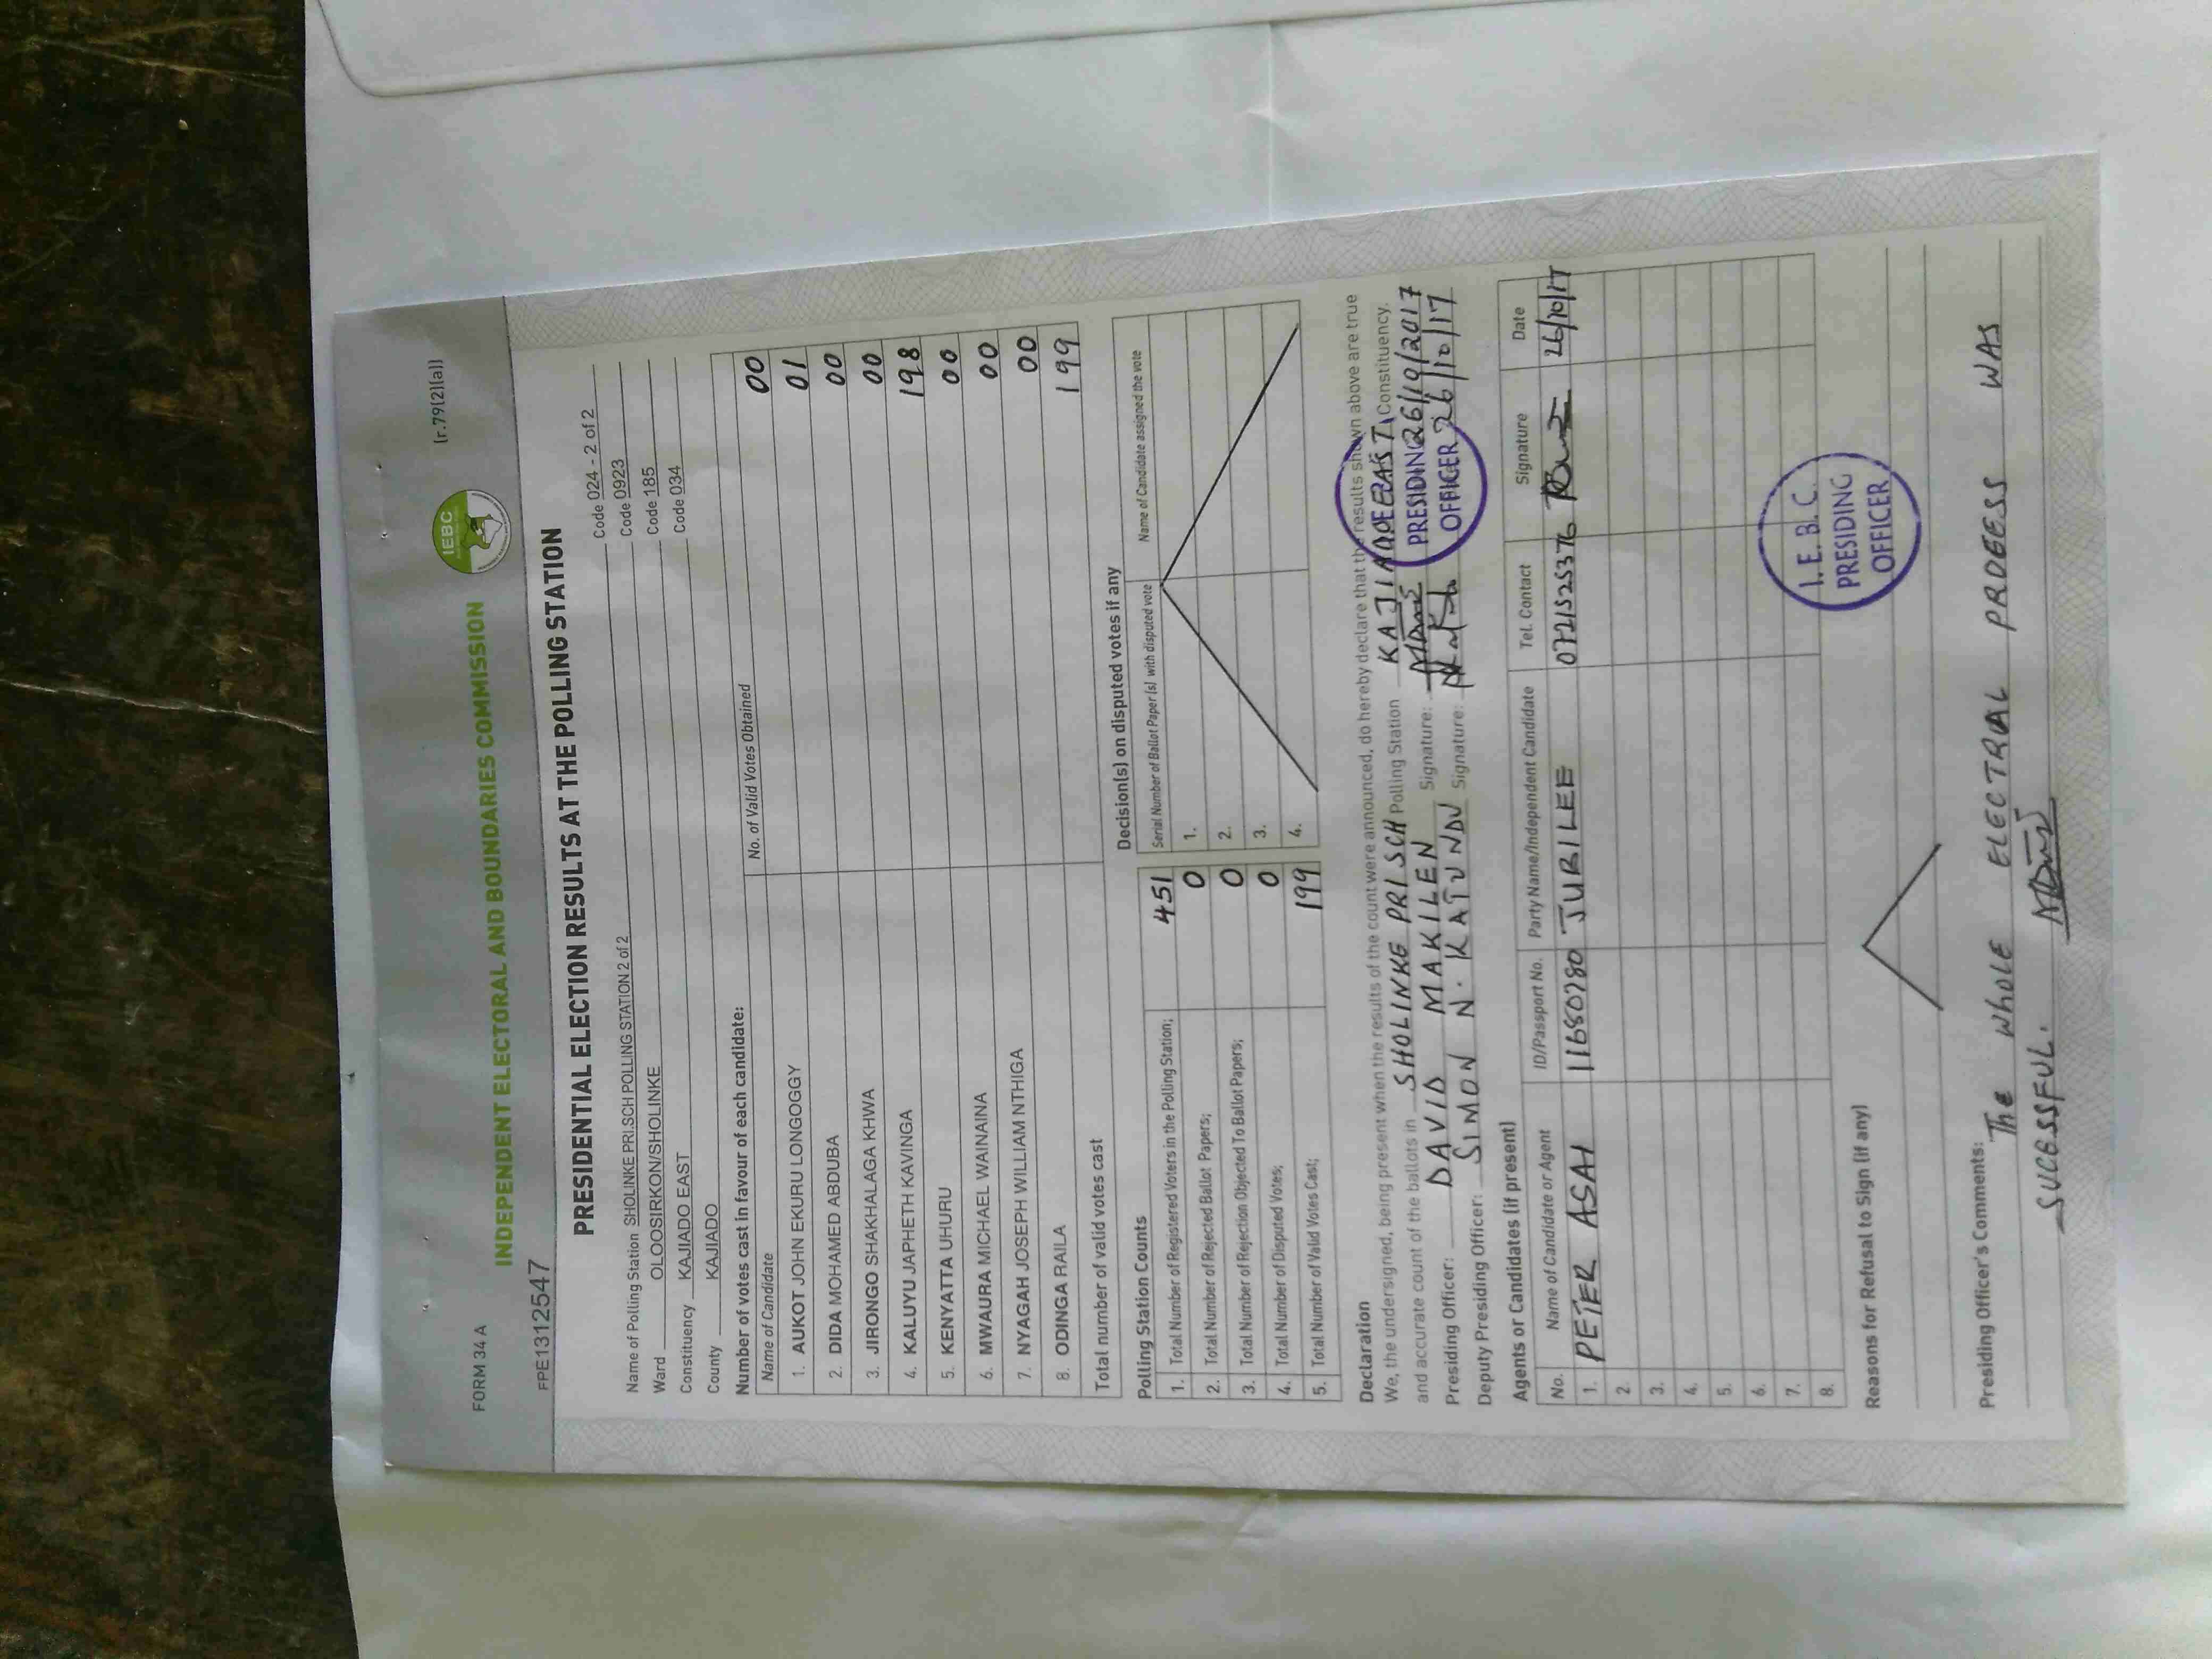 FORM 34 A
(r.79(2)(a))
INDEPENDENT ELECTORAL AND BOUNDARIES COMMISSION
IEBC
FPE1312547
PRESIDENTIAL ELECTION RESULTS AT THE POLLING STATION
Name of Polling Station SHOLINKE PRI.SCH POLLING STATION 2 of 2 Code 024 - 2 of 2
Ward OLOOSIRKON/SHOLINKE Code 0923
Constituency KAJIADO EAST Code 185
County KAJIADO Code 034
Number of votes cast in favour of each candidate:
Name of Candidate No. of Valid Votes Obtained
1. AUKOT JOHN EKURU LONGOGGY 00
2. DIDA MOHAMED ABDUBA 01
3. JIRONGO SHAKHALAGA KHWA 00
4. KALUYU JAPHETH KAVINGA 00
5. KENYATTA UHURU 198
6. MWAURA MICHAEL WAINAINA 00
7. NYAGAH JOSEPH WILLIAM NTHIGA 00
8. ODINGA RAILA 00
Total number of valid votes cast 199
Polling Station Counts
1. Total Number of Registered Voters in the Polling Station; 451
2. Total Number of Rejected Ballot Papers; 0
3. Total Number of Rejection Objected To Ballot Papers; 0
4. Total Number of Disputed Votes; 0
5. Total Number of Valid Votes Cast; 199
Decision(s) on disputed votes if any
Serial Number of Ballot Paper(s) with disputed vote Name of Candidate assigned the vote
1.
2.
3.
4.
Declaration
We, the undersigned, being present when the results of the count were announced, do hereby declare that the results shown above are true
and accurate count of the ballots in SHOLINKE PRI SCH Polling Station KAJIADO EAST Constituency.
Presiding Officer: DAVID MAKILEN Signature: 26/10/2017
Deputy Presiding Officer: SIMON N. KATUNDU Signature: 26/10/17
PRESIDING OFFICER
Agents or Candidates (if present)
No. Name of Candidate or Agent ID/Passport No. Party Name/Independent Candidate Tel. Contact Signature Date
1. PETER ASAI 11680780 JUBILEE 0721525376 26/10/17
2.
3.
4.
5.
6.
7.
8.
I.E.B.C.
PRESIDING
OFFICER
Reasons for Refusal to Sign (if any)
Presiding Officer's Comments:
The whole ELECTRAL PROCESS WAS
SUCESSFUL.